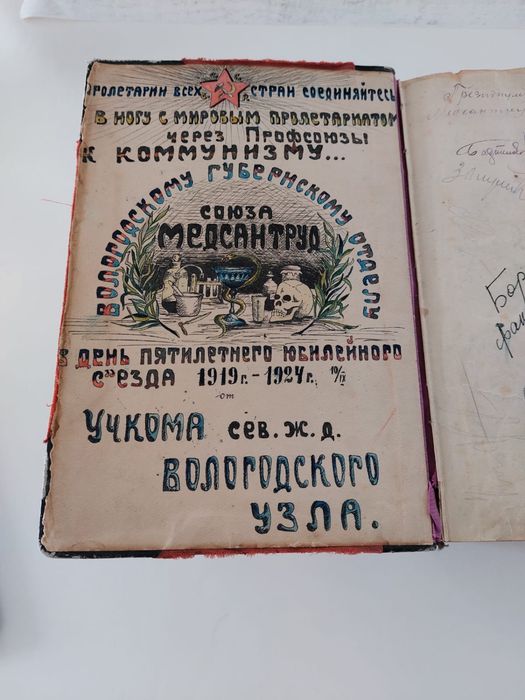 Пролетарии всех стран соединяйтесь
в ногу с мировым пролетариатом
через Профсоюзы
к коммунизму...
Вологодскому губернскому отделу
союза
Медсантруд
в день пятилетнего юбилейного
с"езда 1919г.-1924г. 10/IX
от
Учкома сев. ж. д.
Вологодского
узла.
Президиум